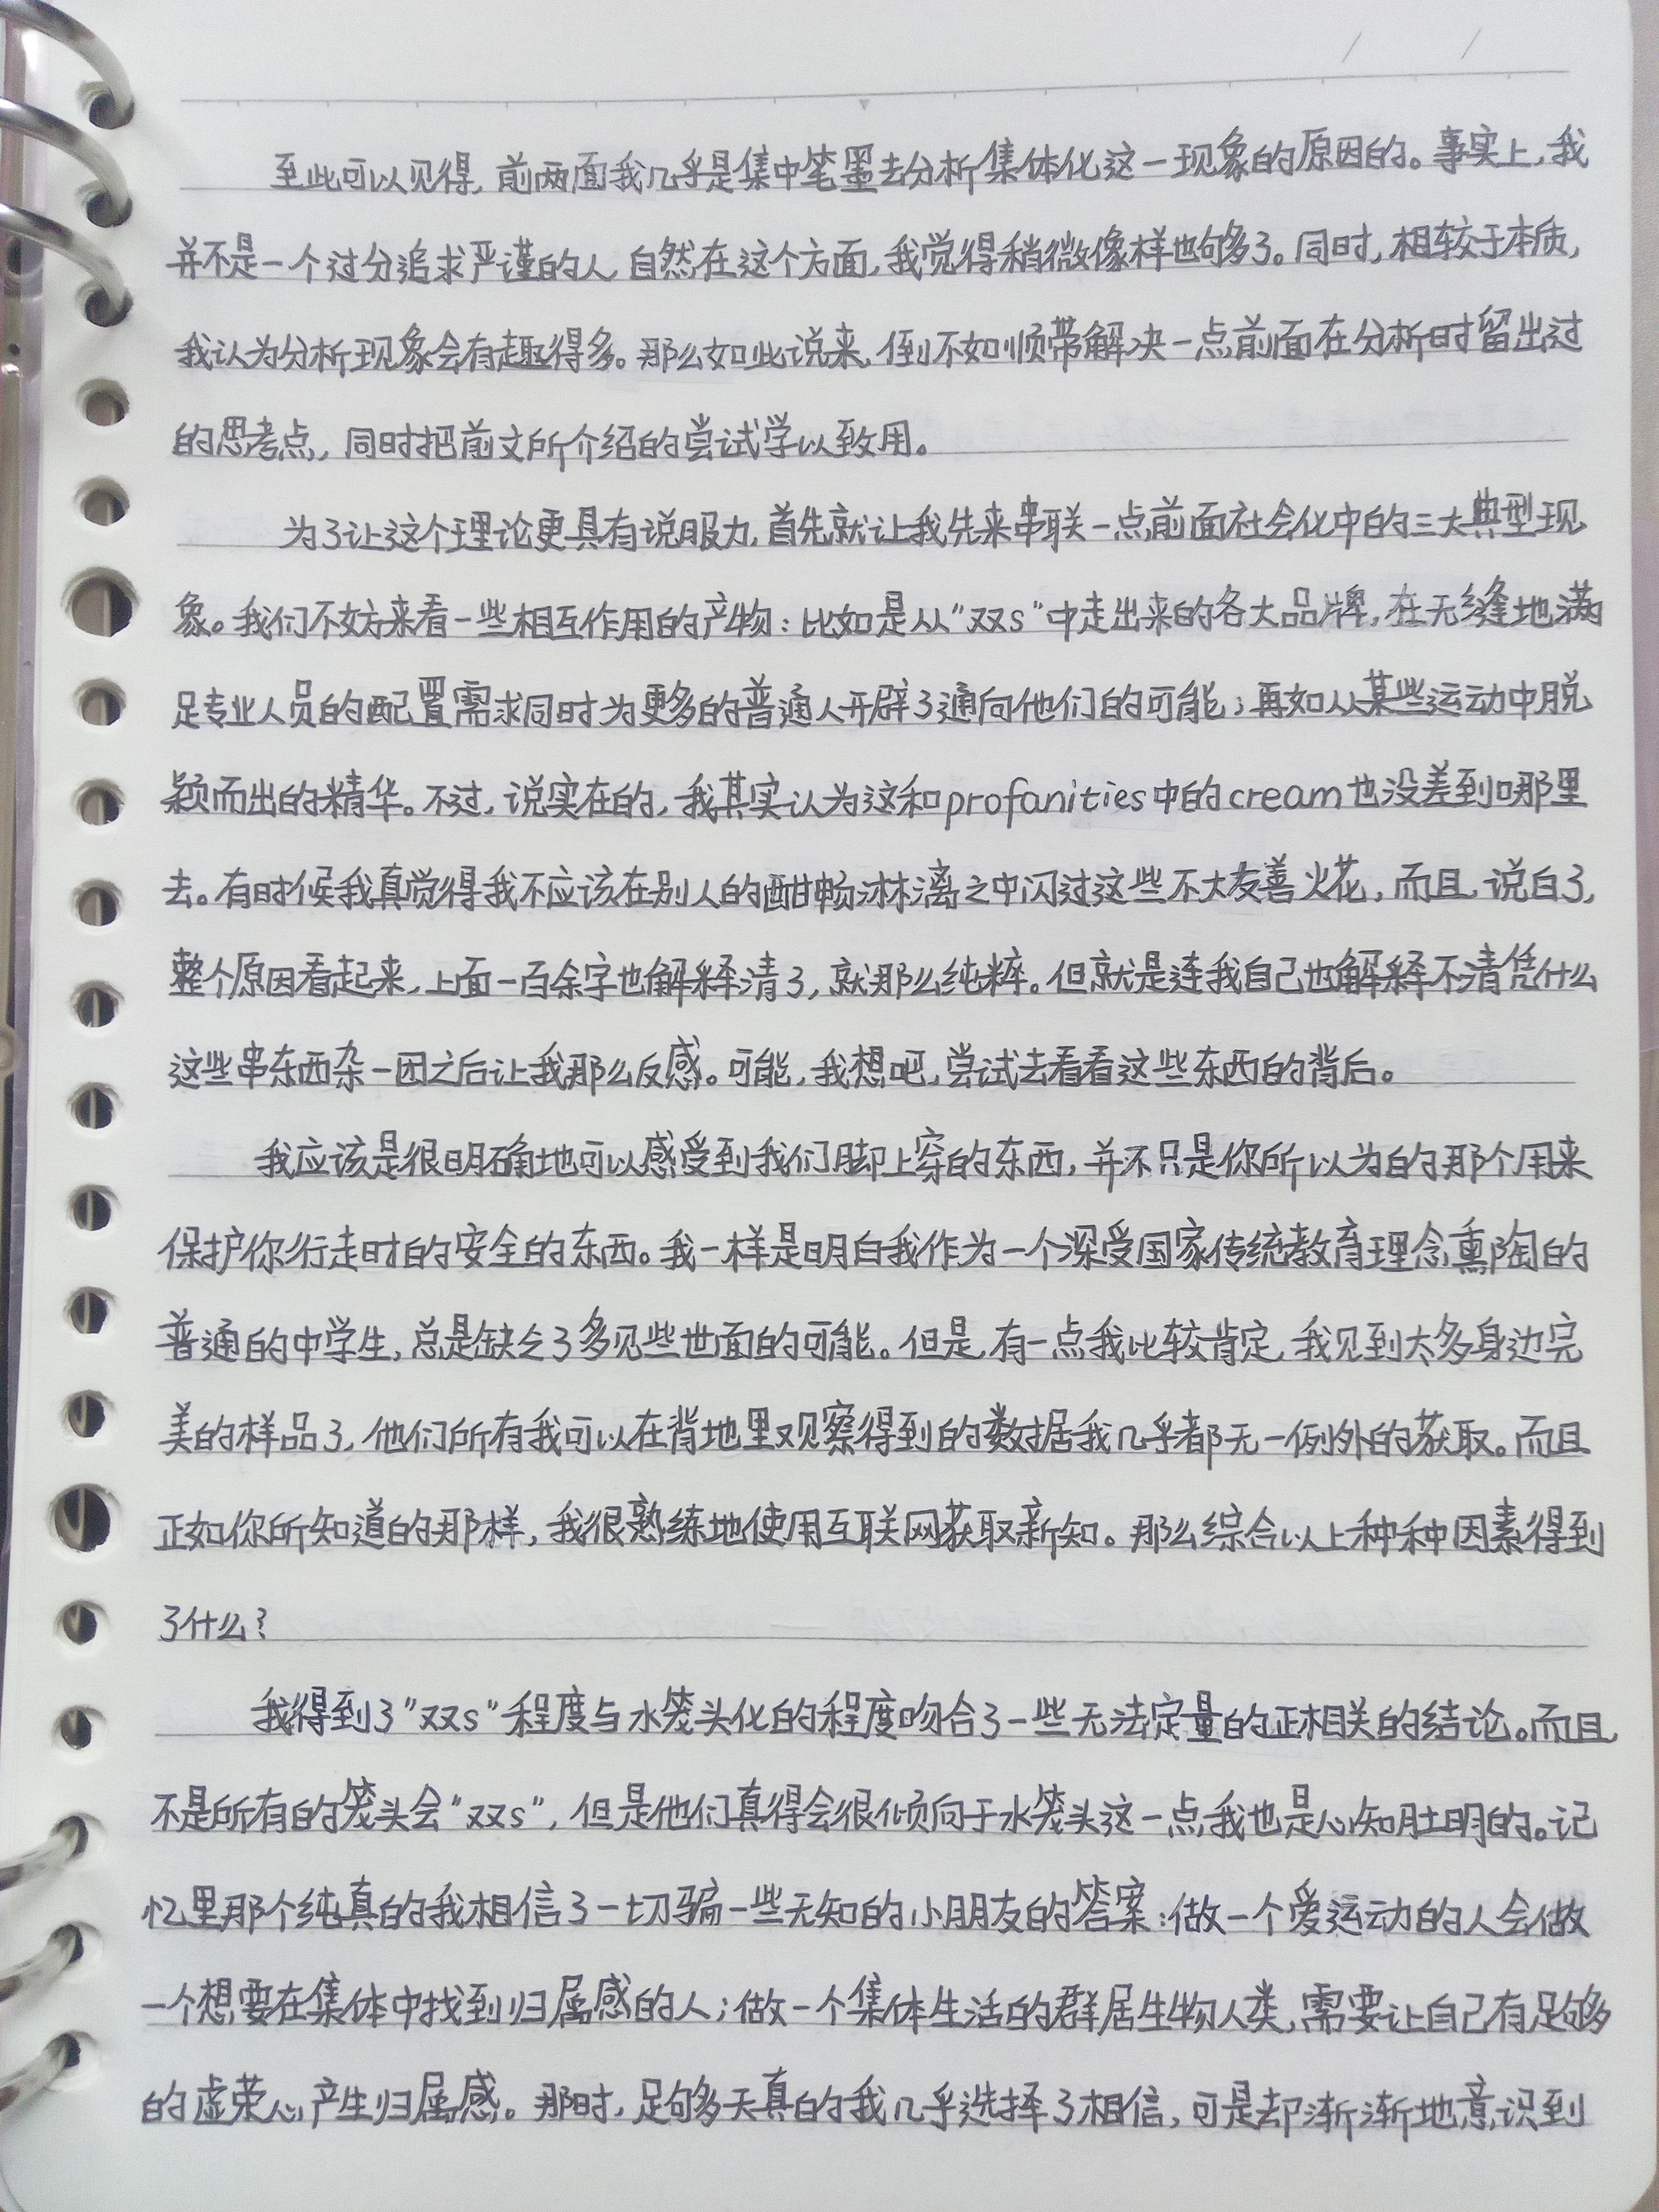 至此可以见得，前两面我几乎是集中笔墨去分析集体化这一现象的原因的。事实上，我
并不是一个过分追求严谨的人，自然在这个方面，我觉得稍微像样也够多了。同时，相较于本质，
我认为分析现象会有趣得多。那么如此说来，倒不如顺带解决一点前面在分析时留出过
的思考点，同时把前文所介绍的尝试学以致用。
为了让这个理论更具有说服力，首先就让我先来串联一点前面社会化中的三大典型现
象。我们不妨来看一些相互作用的产物：比如是从“双s”中走出来的各大品牌，在无缝地满
足专业人员的配置需求同时为更多的普通人开辟了通向他们的可能；再如从某些运动中脱
颖而出的精华。不过，说实在的，我其实认为这和profanities中的cream也没差到哪里
去。有时候我真觉得我不应该在别人的酣畅淋漓之中闪过这些不太友善火花，而且，说白了，
整个原因看起来，上面一百余字也解释清了，就那么纯粹。但就是连我自己也解释不清凭什么
这些串东西杂一团之后让我那么反感。可能，我想吧，尝试去看看这些东西的背后。
我应该是很明确地可以感受到我们脚上穿的东西，并不只是你所以为的那个用来
保护你行走时的安全的东西。我一样是明白我作为一个深受国家传统教育理念熏陶的
普通的中学生，总是缺乏了多见些世面的可能。但是，有一点我比较肯定，我见到太多身边完
美的样品了，他们所有我可以在背地里观察得到的数据我几乎都无一例外的获取。而且
正如你所知道的那样，我很熟练地使用互联网获取新知。那么综合以上种种因素得到
了什么？
我得到了“双s”程度与水笼头化的程度吻合了一些无法定量的正相关的结论。而且
不是所有的笼头会“双s”，但是他们真得会很倾向于水笼头这一点，我也是心知肚明的。记
忆里那个纯真的我相信了一切骗一些无知的小朋友的答案：做一个爱运动的人会做
一个想要在集体中找到归属感的人；做一个集体生活的群居生物人类，需要让自己有足够多
的虚荣心产生归属感。那时，足够多天真的我几乎选择了相信，可是却渐渐地意识到